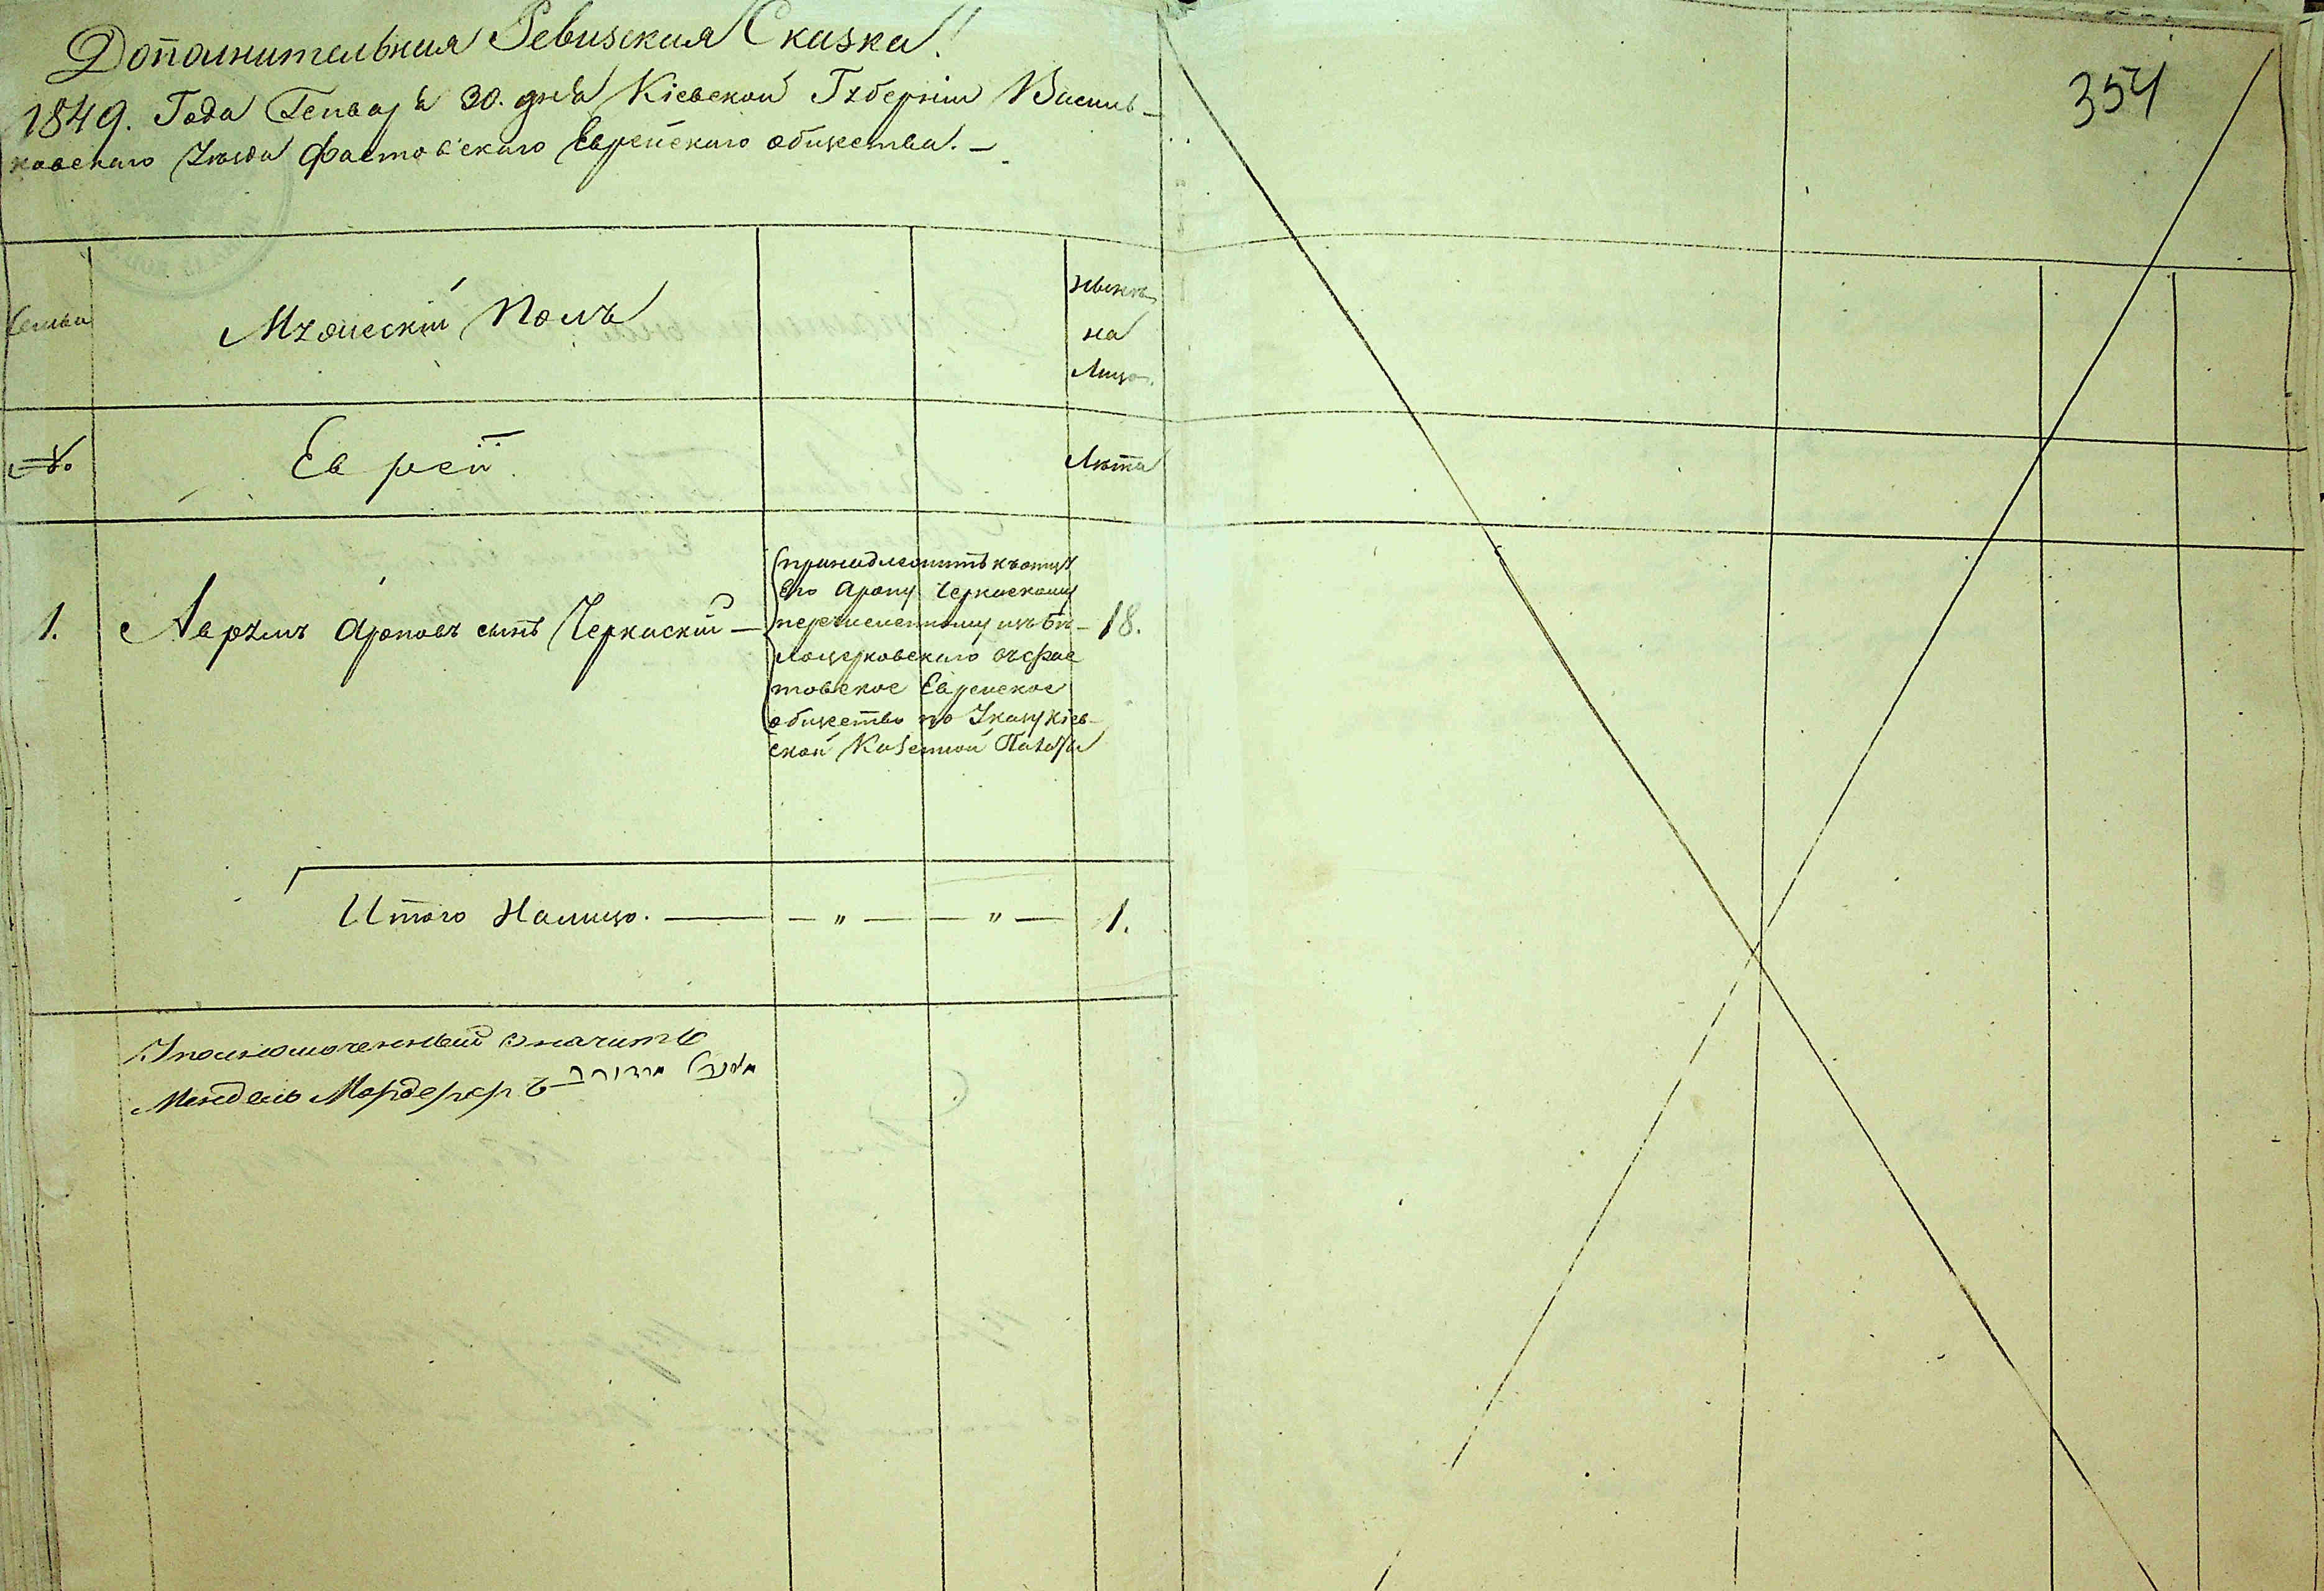 Дополнительная Ревизская Сказка!
354
1849. Года Генваря 30. дня Кіевской Губерніи Василь-
ковскаго Уѣзда Фастовскаго Еврейскаго общества. —
Семьи
Мужескій Полъ
Нынѣ
на
Лицо.
№
Еврей
Лѣта
1. Аврумъ Ароновъ сынъ Черкаскій — 18.
принадлежитъ къ отцу
Его Арону Черкаскому
перечисленному изъ Бѣ-
лоцерковскаго въ Фас
товское Еврейское
общество по Указу Кіев-
ской Казенной Палаты
Итого Налицо. — " — — " — 1.
Уполномоченный
Мендель